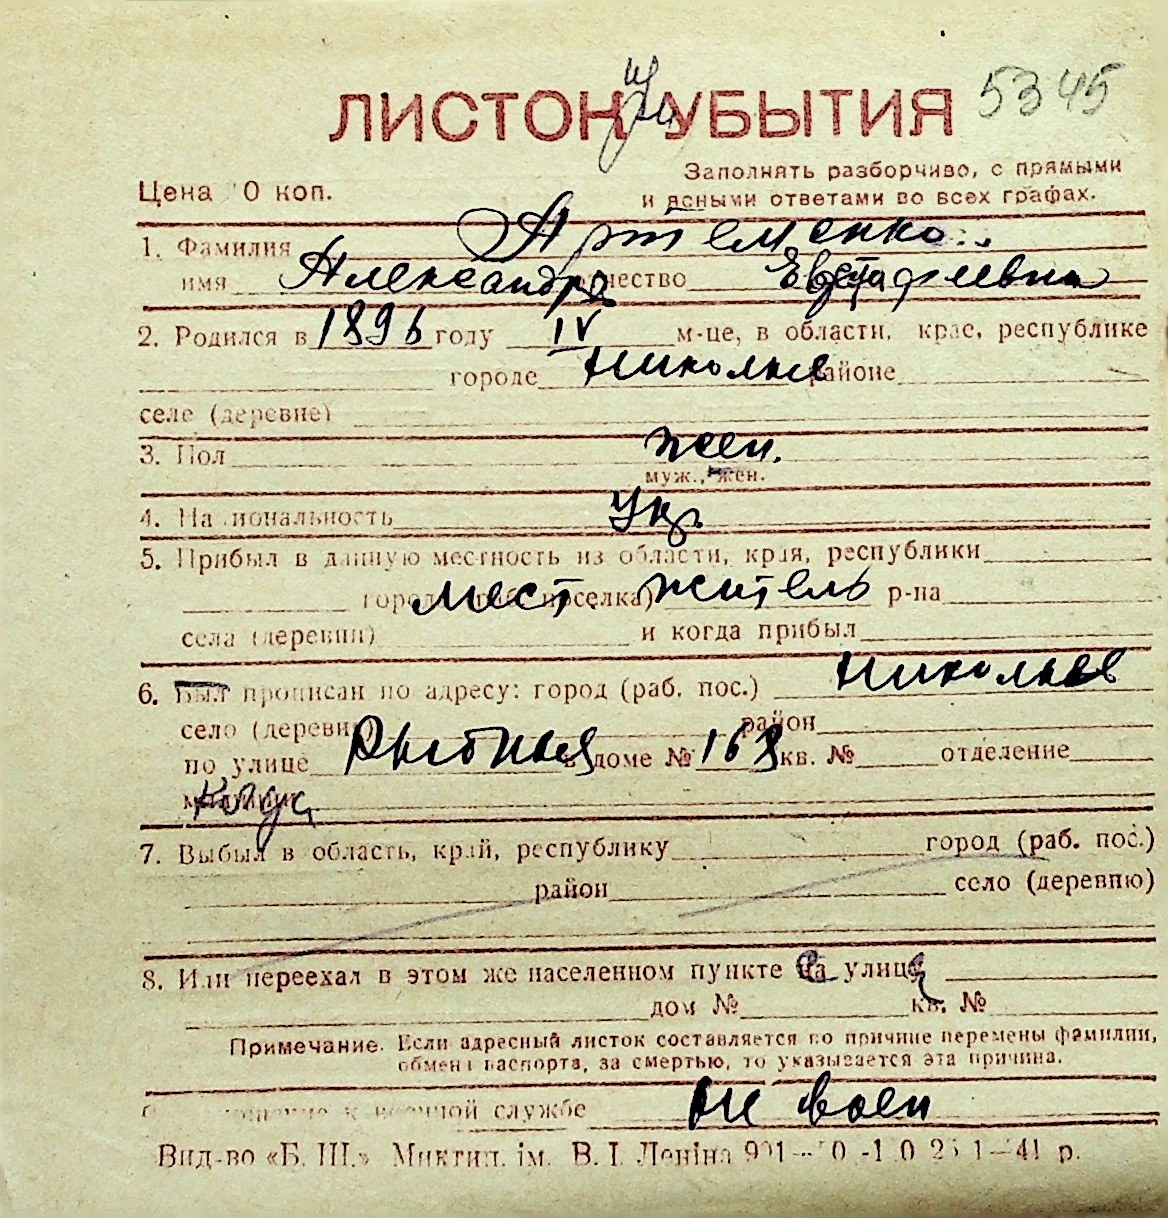 ЛИСТОК УБЫТИЯ 5345
Заполнять разборчиво, с прямыми
Цена 0 коп. и ясными ответами во всех графах.
1. Фамилия Артеменко
имя Александра отчество Евстафиевна
2. Родился в 1896 году IV м-це, в области, крае, республике
городе Николаев районе
селе (деревне)
3. Пол жен.
муж., жен.
4. Национальность Укр.
5. Прибыл в данную местность из области, края, республики
города поселка) мест. житель р-на
села (деревни) и когда прибыл
6. Был прописан по адресу: город (раб. пос.) Николаев
село (деревня) район
по улице Рыбная в доме № 168 кв. № отделение
7. Выбыл в область, край, республику город (раб. пос.)
район село (деревню)
8. Или переехал в этом же населенном пункте на улице
дом № кв. №
Примечание. Если адресный листок составляется по причине перемены фамилии,
обмена паспорта, за смертью, то указывается эта причина.
военной службе не воен
Вид-во «Б. Ш.» Миктип. ім. В. І. Леніна 41 р.